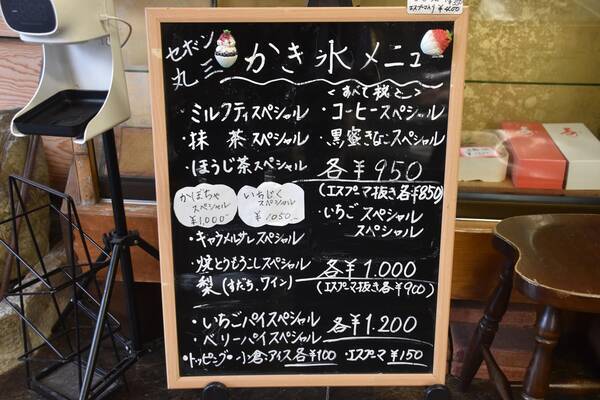 エスプーマ入り ¥400
セボン
丸三
かき氷メニュー
〈すべて税込〉
・ミルクティスペシャル ・コーヒースペシャル
・抹茶スペシャル ・黒蜜きなこスペシャル
・ほうじ茶スペシャル 各¥950
(エスプーマ抜き各¥850)
かぼちゃ
スペシャル
¥1,000-
いちじく
スペシャル
¥1050-
・いちごスペシャル
スペシャル
・キャラメルサレスペシャル
・焼とうもろこしスペシャル 各¥1.000
梨(すだち、ワイン) (エスプーマ抜き各¥900)
・いちごパイスペシャル 各¥1.200
・ベリーパイスペシャル
・トッピング・小倉・アイス各¥100 ・エスプーマ¥150